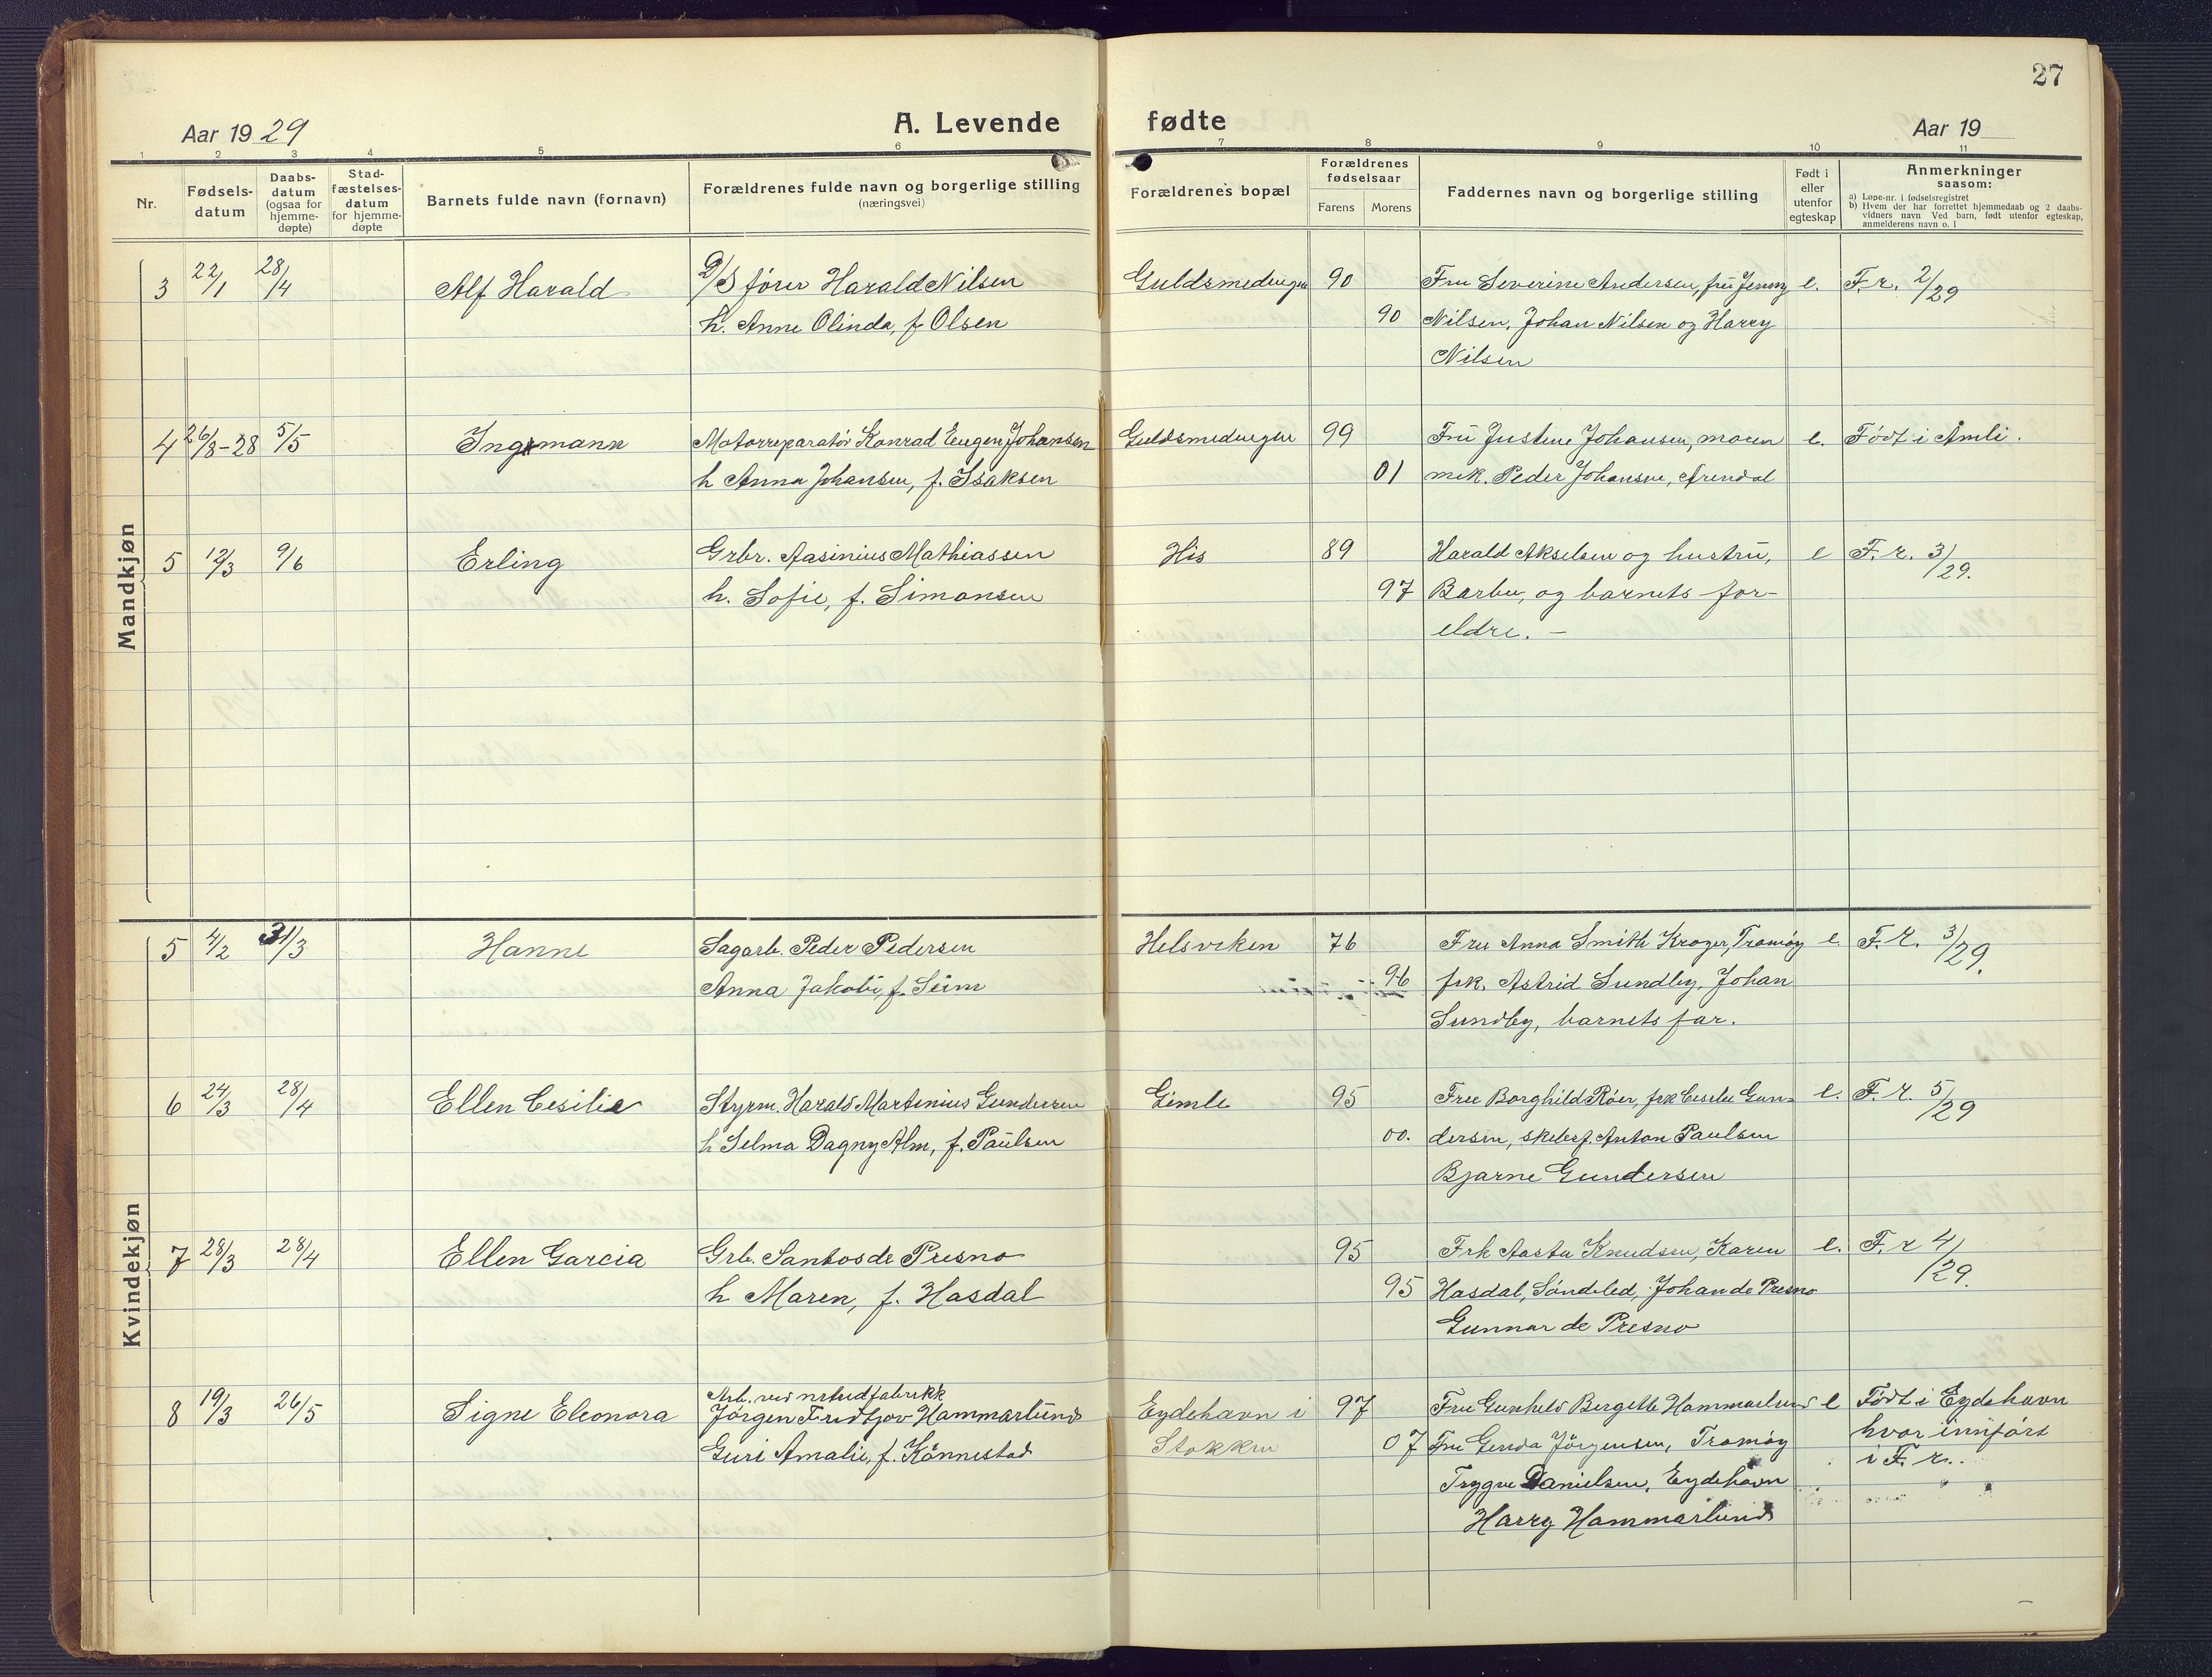 27
Aar 1929
A. Levende fødte
Aar 19
1 2 3 4 5 6 7 8 9 10 11
Nr.
Fødsels-
datum
Daabs-
datum
(ogsaa for
hjemme-
døpte)
Stad-
fæstelses-
datum
for hjemme-
døpte
Barnets fulde navn (fornavn)
Forældrenes fulde navn og borgerlige stilling
(næringsvei)
Forældrenes bopæl
Forældrenes
fødselsaar
Farens Morens
Faddernes navn og borgerlige stilling
Født i
eller
utenfor
egteskap
Anmerkninger
saasom:
a) Løpe-nr. i fødselsregistret
b) Hvem der har forrettet hjemmedaab og 2 daabs-
vidners navn Ved barn, født utenfor egteskap,
anmelderens navn o. l
Mandkjøn
3 22/1 28/4 Alf Harald D/S fører Harald Nilsen Guldsmedengen 90 Fru Severine Andersen, fru Jenny e. F. r. 2/29
h. Anne Olinda, f Olsen 90 Nilsen, Johan Nilsen og Harry
Nilsen
4 26/8-28 5/5 Ingemann Motorreparatør Konrad Eugen Johansen Guldsmedengen 99 Fru Justine Johansen, moren e. Født i Åmli.
h Anna Johansen, f. Isaksen 01 mek. Peder Johansen, Arendal
5 12/3 9/6 Erling Grbr. Aasinius Mathiassen His 89 Harald Akselsen og hustru, e F. r. 3/29.
h. Sofie, f. Simonsen 97 Barbu, og barnets for-
eldre. –
Kvindekjøn
5 4/2 31/3 Hanne Sagarb. Peder Pedersen Helsviken 76 Fru Anna Smith Krager, Tromøy e. F. r. 3/29.
Anna Jakobi, f. Seim 96 frk. Astrid Sundby, Johan
Sundby, barnets far.
6 24/3 28/4 Ellen Cesilie Styrm. Harald Martinius Gundersen Gimle 95 Fru Borghild Röer, frk Cesilie Gun- e. F. r. 5/29
h Selma Dagny Alm, f. Paulsen 00. dersen, skibsf. Anton Paulsen
Bjarne Gundersen
7 28/3 28/4 Ellen Garcia Grb. Santos de Presno 95 Frk Aasta Knudsen, Karen e. F. r 4/29.
h Maren, f. Hasdal 95 Hasdal, Söndeled, Johan de Presno
Gunnar de Presno
8 19/3 26/5 Signe Eleonora Arb. ved fabrikk
Jörgen Fridtjov Hammarlund Eydehavn i 97 Fru Bergitte Hammarlund e Født i Eydehavn
Guri Amalie, f. Kånnestad Stokken 07 Fru Gerda Jörgensen, Tromöy hvor innført
Trygve Danielsen, Eydehavn i F. r..
Harry Hammarlund